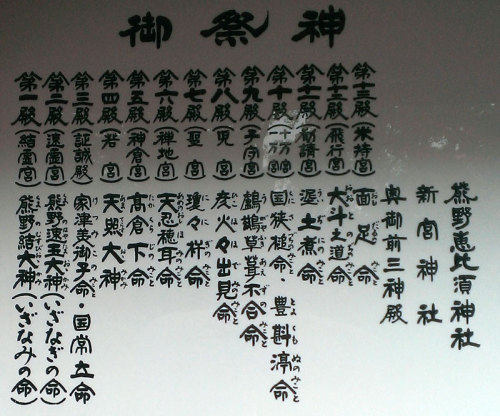 御祭神
第一殿(結霊宮)熊野結大神(いざなみの命)
第二殿(速霊宮)熊野速玉大神(いざなぎの命)
第三殿(証誠殿)家津美御子命・国常立命
第四殿(若宮)天照大神
第五殿(神倉宮)高倉下命
第六殿(禅地宮)天忍穂耳命
第七殿(聖宮)瓊々杵命
第八殿(児宮)彦火々出見命
第九殿(子守宮)鸕鶿草葺不合命
第十殿(十万宮)国狭槌命・豊斟渟命
第十一殿(勧請宮)泥土煮命
第十二殿(飛行宮)大斗之道命
第十三殿(米持宮)面足命
奥御前三神殿
新宮神社
熊野恵比須神社